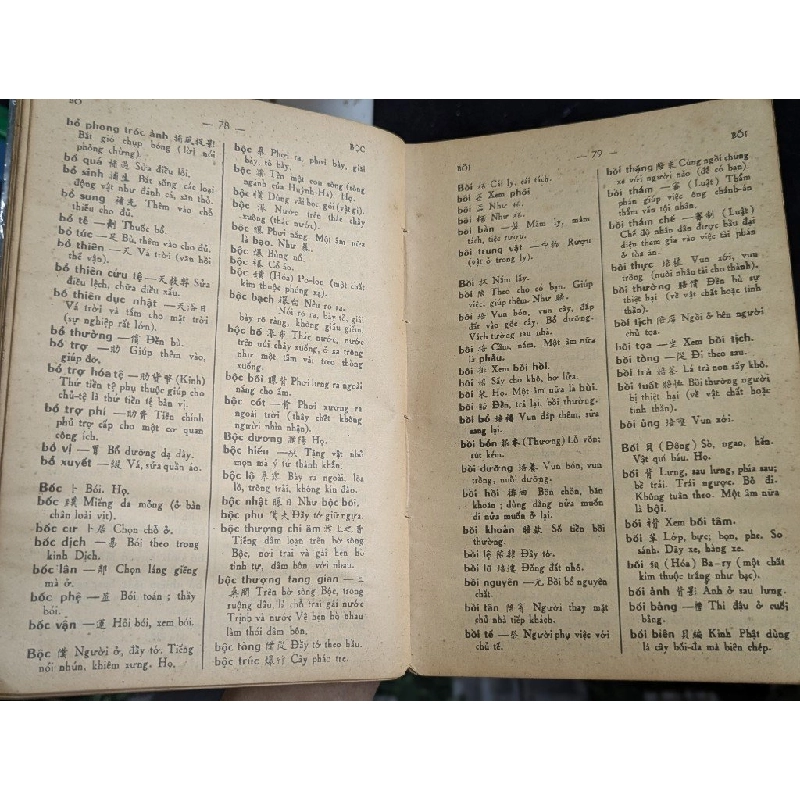 BỔ
— 78 —
BỘC
bổ phong tróc ảnh 捕風捉影
Bắt gió chụp bóng (lời nói
phỏng chừng).
bổ quá 補過 Sửa điều lỗi.
động vật như đánh cá, săn thú.
bổ sung 補充 Thêm vào chỗ
thiếu cho đủ.
bổ tề —劑 Thuốc bổ.
bổ túc —足 Bù, thêm vào cho đủ.
bổ thiên —天 Vá trời (văn bồi
thế vận).
bổ thiên cứu tệ —天救弊 Sửa
điều lệch, chữa điều xấu.
bổ thiên dục nhật —天浴日
Vá trời và tắm cho mặt trời
(sự nghiệp rất lớn).
bổ thường —償 Đền bù.
bổ trợ —助 Giúp thêm vào,
giúp đỡ.
bổ trợ hóa tệ —助貨幣 (Kinh)
Thứ tiền tệ phụ thuộc giúp cho
chủ-tệ là thứ tiền tệ bản vị.
bổ trợ phí —助費 Tiền chính
phủ trợ cấp cho một cơ quan
công ích.
bổ vị —胃 Bổ dưỡng dạ dày.
bổ xuyết —綴 Vá, sửa quần áo.
Bốc 卜 Bói. Họ.
bốc 璞 Miếng da mỏng (ở bàn
chân loài vịt).
bốc cư 卜居 Chọn chỗ ở.
bốc dịch —易 Bói theo trong
kinh Dịch.
bốc lân —鄰 Chọn láng giềng
mà ở.
bốc phệ —筮 Bói toán; thầy
bói.
bốc vận —運 Hỏi bói, xem bói.
Bộc 僕 Người ở, đầy tớ. Tiếng
nói nhún, khiêm xưng. Họ.
bộc 暴 Phơi ra, phơi bày, giãi
bày, tỏ bày.
bộc 濮 Tên một con sông (sông
ngành của Huỳnh Hà) Họ.
bộc 瀑 Nước trên thác chảy
xuống (thác nước).
bộc 曝 Phơi nắng Một âm nữa
là bạo. Như 暴.
bộc 爆 Hừng nổ.
bộc 襮 Cổ áo.
bộc bạch 暴白 Nói rõ ra.
Nói rõ ra, bày tỏ, giãi
bày rõ ràng, không giấu giếm
bộc bố 瀑布 Thác nước, nước
trên núi chảy xuống, ở xa trông
như một tấm vải treo thòng
xuống.
bộc bối 曝背 Phơi lưng ra ngoài
nắng cho ấm.
bộc cốt —骨 Phơi xương ra
ngoài trời (thây chết không
người nhìn nhận).
Bộc dương 濮陽 Họ.
bộc hiến —獻 Tặng vật nhỏ
mọn mà ý tứ thành khẩn.
bộc lộ 暴露 Bày ra ngoài, lòa
lồ, trống trải, không kín đáo.
bộc nhật 曝日 Như bộc bối.
bộc phu 僕夫 Đầy tớ giữ ngựa.
bộc thượng chi âm 濮上之音
Tiếng dâm loạn trên bờ sông
Bộc, nơi trai và gái hẹn hò
tình tự, dâm bôn với nhau.
bộc thượng tang gian —上
桑間 Trên bờ sông Bộc, trong
ruộng dâu là chỗ trai gái nước
Trịnh và nước Vệ hẹn hò nhau
làm thói dâm bôn.
bộc tòng 僕從 Đầy tớ theo hầu.
bộc trúc 爆竹 Cây pháo tre.
BÔI
— 79 —
BỐI
Bôi 坯 Xem phôi
bôi bàn —盤 Mâm ly, mâm
tính, tiệc rượu.
bôi trung vật —中物 Rượu
(vật ở trong ly).
Bồi 抔 Nắm lấy.
bồi 陪 Theo cho có bạn. Giúp
việc, giúp thêm.
bồi 培 Vun bón, vun cây, đắp
đất vào gốc cây. Bổ dưỡng.
Vách tường sau nhà.
là phẩu.
bồi 徘 Xem bồi hồi.
bồi 焙 Sấy cho khô, hơ lửa.
bồi 裴 Họ. Một âm nữa là bùi.
bồi 賠 Đền, trả lại, bồi thường.
bồi bổ 培補 Vun đắp thêm, sửa
sang lại.
bồi bổn 賠本 (Thương) Lỗ vốn;
sút kém.
bồi dưỡng 培養 Vun bón, vun
trồng, nuôi dưỡng.
bồi hồi 徘徊 Bồn chồn, băn
khoăn; dùng dằng nửa muốn
đi nửa muốn ở lại.
bồi khoản 賠款 Số tiền bồi
thường.
bồi lệ 陪隸 Đầy tớ.
bồi lũ 培塿 Đống đất nhỏ.
bồi nguyên —元 Bồi bổ nguyên
chất.
bồi tân 陪賓 Người thay mặt
chủ nhà tiếp khách.
bồi tế —祭 Người phụ việc với
chủ tế.
bồi thặng 陪乘 Cùng ngồi chung
xe với người nào (để có bạn)
bồi thẩm —審 (Luật) Thẩm
phán giúp việc ông chánh-án
thẩm vấn tội nhân.
bồi thẩm chế —審制 (Luật)
Chế độ nhân dân được bầu đại
diện tham gia vào việc tài phán
ở tòa án.
bồi thực 培植 Vun xới, vun
trồng (nuôi nhân tài cho thành).
bồi thường 賠償 Đền bù sự
thiệt hại (về vật chất hoặc tinh
thần).
bồi tịch 陪席 Ngồi ở bên người
chủ tọa.
bồi tọa —坐 Xem bồi tịch.
bồi tòng —從 Đi theo sau.
bồi trà 焙茶 Lá trà non sấy khô.
bồi tuất 賠恤 Bồi thường người
bị thiệt hại (về vật chất hoặc
tinh thần).
bồi ủng 培壅 Vun xới.
Bối 貝 (Động) Sò, ngao, hến.
Vật quí báu. Họ.
bối 背 Lưng, sau lưng, phía sau;
bề trái. Trái ngược. Bỏ đi.
Không tuân theo. Một âm nữa
là bội.
bối 褙 Xem bồi tâm.
bối 輩 Lớp, bực; bọn, phe. So
sánh. Dãy xe, hàng xe.
bối 鋇 (Hóa) Ba-ry (một chất
kim thuộc trắng như bạc).
bối ảnh 背影 Ảnh ở sau lưng.
bối bảng —榜 Thi đậu ở cuối
bảng.
bối biên 貝編 Kinh Phật dùng
lá cây bối-đa mà biên chép.